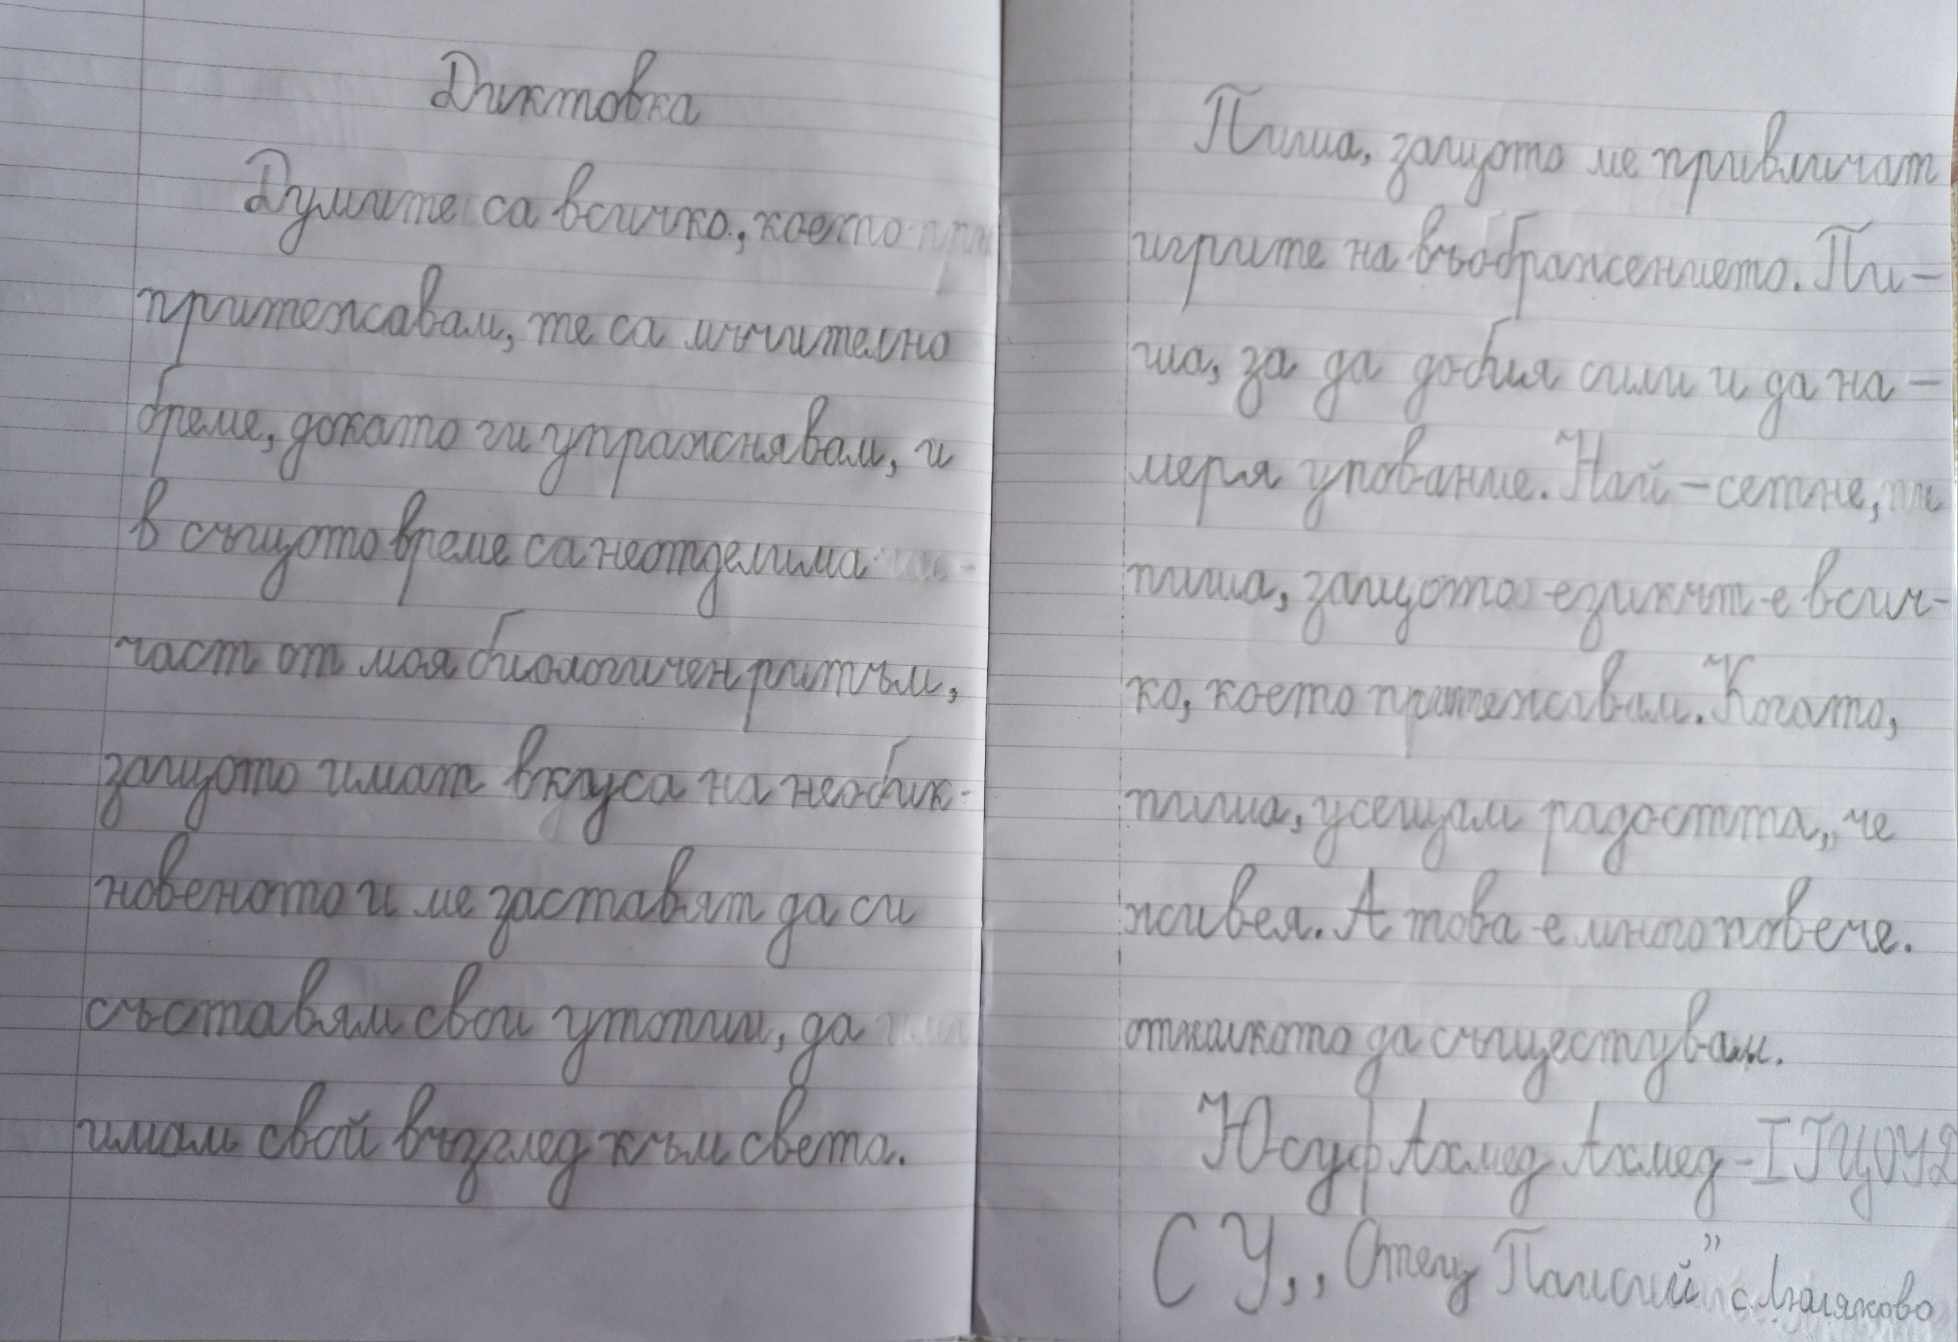 Диктовка
Думите са всичко, което
притежавам, те са мъчително
бреме, докато ги упражнявам, и
в същото време са неотделима
част от моя биологичен ритъм,
защото имат вкуса на необик-
новеното и ме заставят да си
съставям свои утопии, да
имам свой възглед към света.
Пиша, защото ме привличат
игрите на въображението. Пи-
ша, за да добия сили и да на-
меря упование. Най-сетне, пи
пиша, защото езикът е всич-
ко, което притежавам. Когато,
пиша, усещам радостта, че
живея. А това е много повече.
отколкото да съществувам.
Юсуф Ахмед Ахмед - I ГЦОУД
СУ ,,Отец Паисий" с.